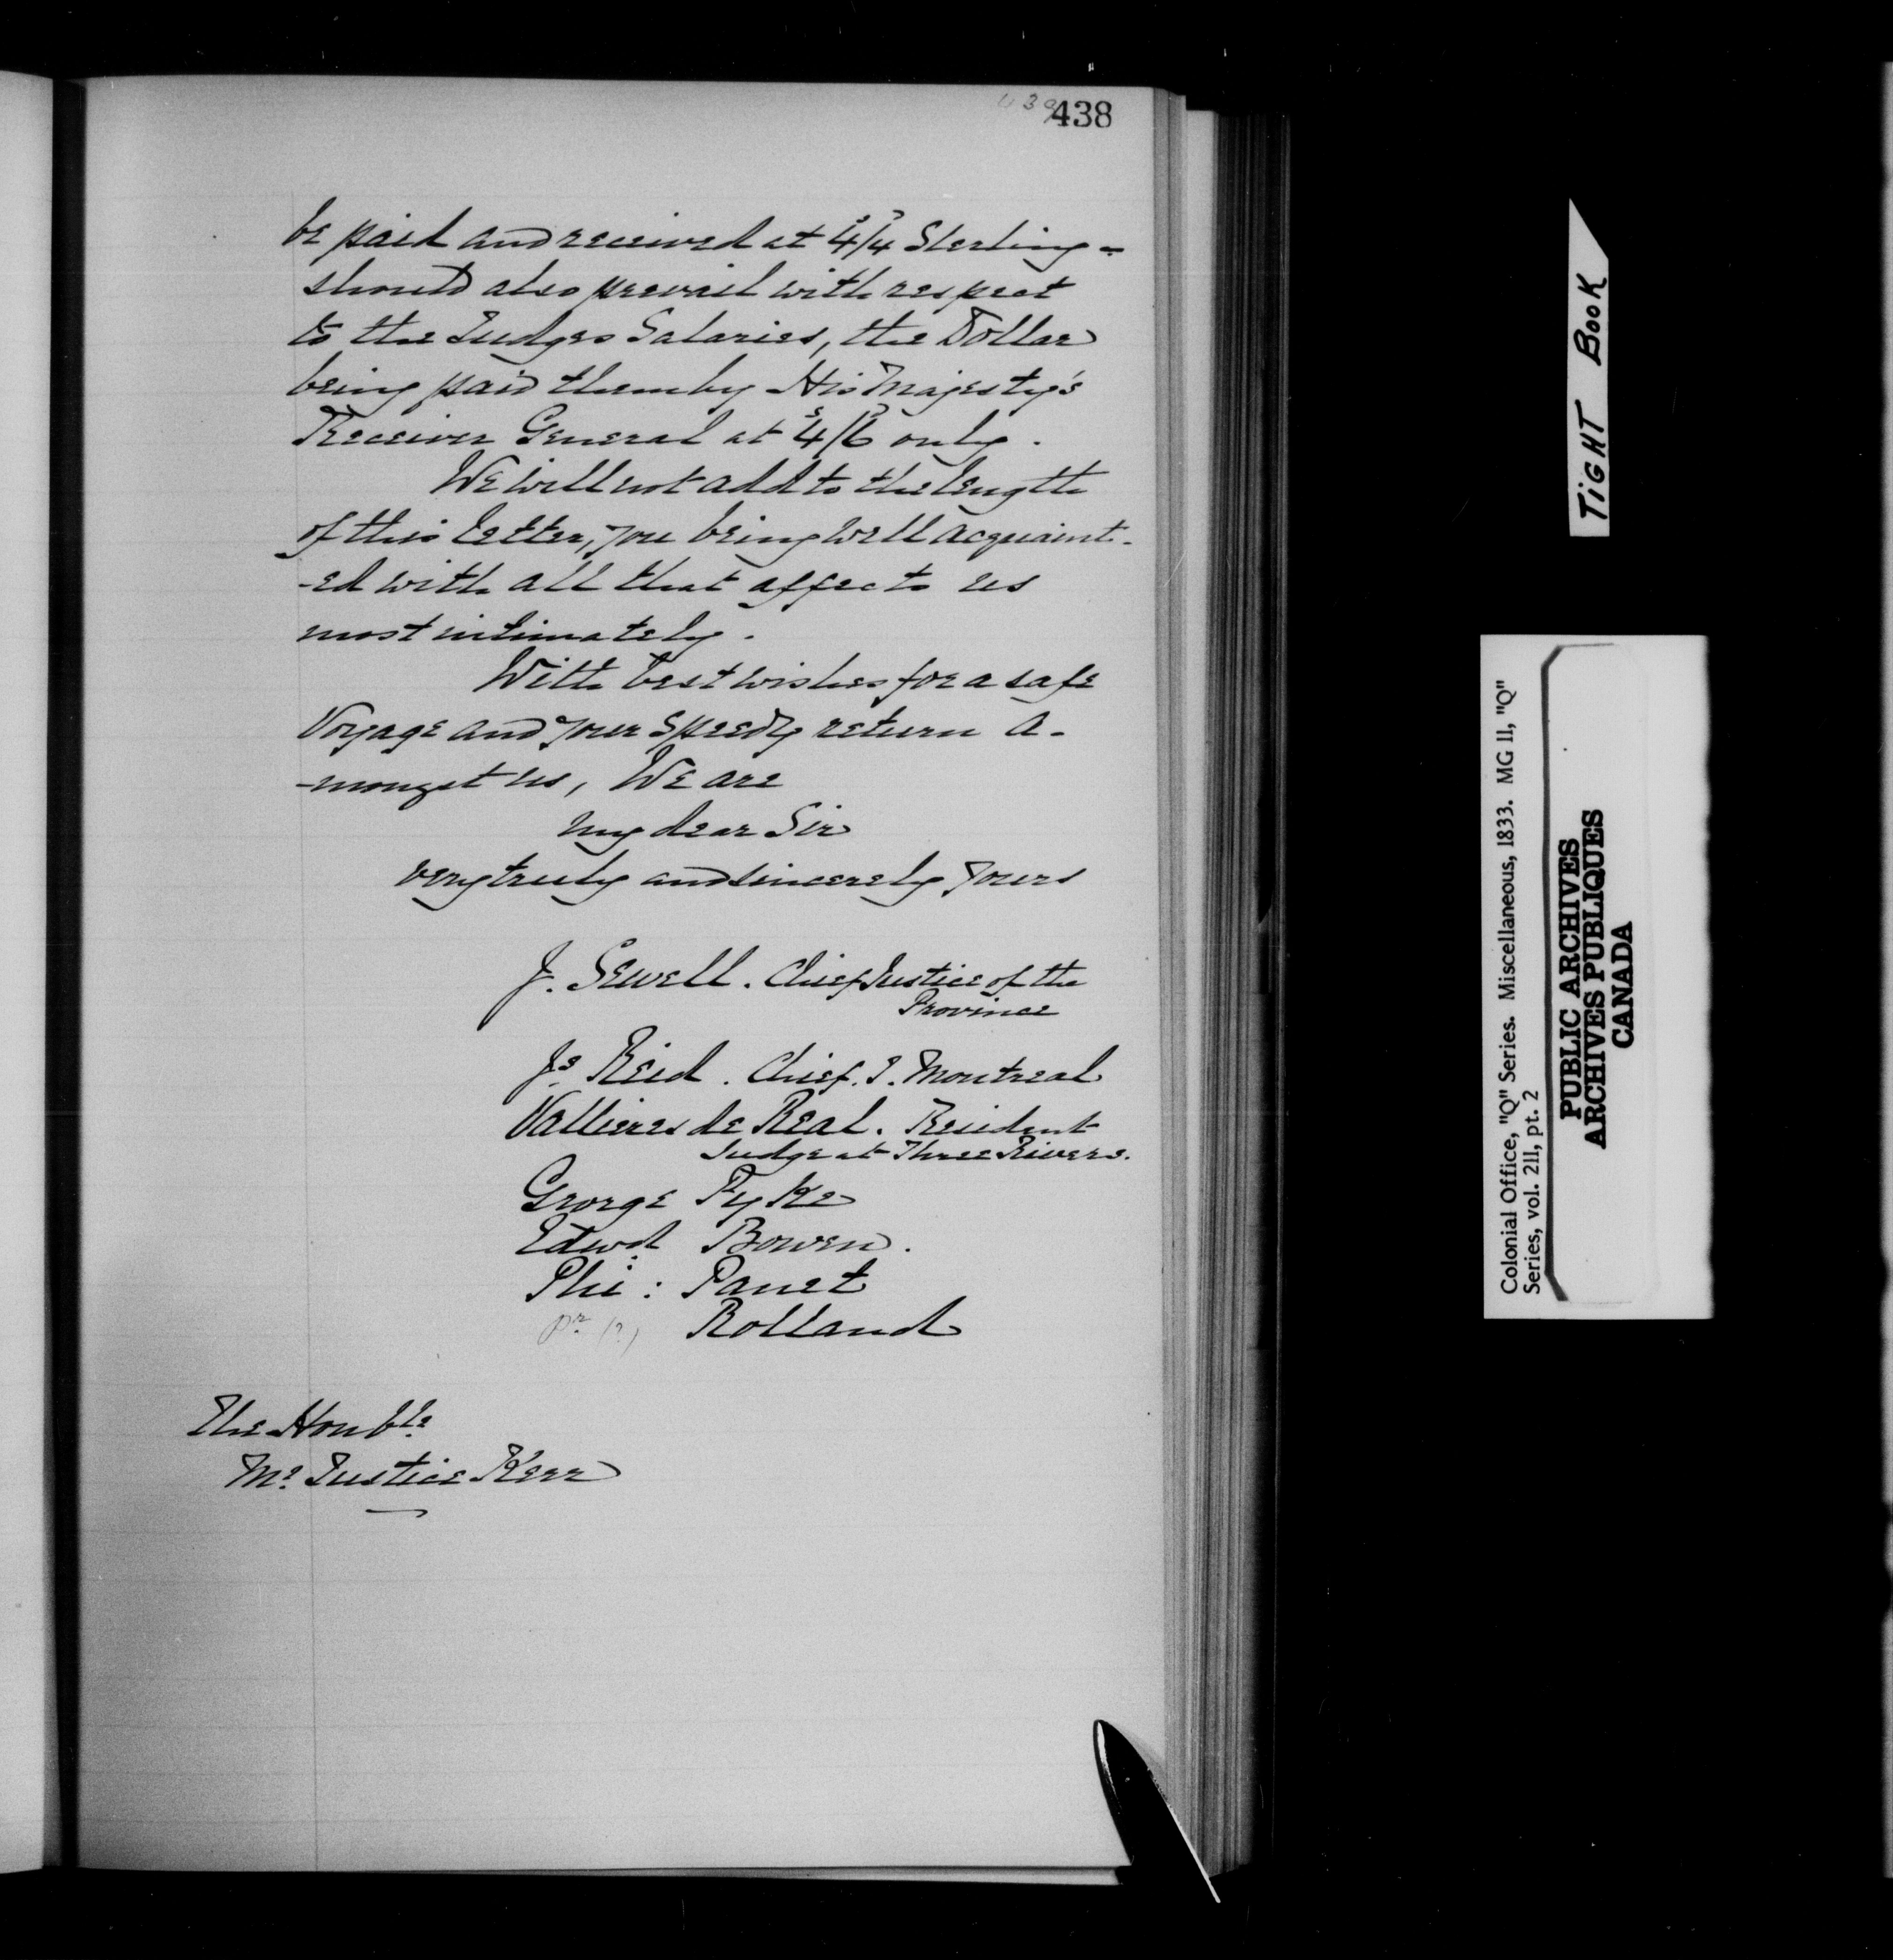 439
438
be paid and received at 4/4 Sterling -
should also prevail with respect
to the Judges Salaries, the Dollar
being paid them by His Majesty's
Receiver General at 4/6 only.
We will not add to the length
of this letter, you being well acquaint-
-ed with all that affects us
most intimately.
With best wishes for a safe
Voyage and your speedy return a-
-mongst us, We are
My dear Sir
very truly and sincerely yours
J. Sewell. Chief Justice of the
Province
Js. Reid. Chief. J. Montreal
Vallieres de Real. Resident
Judge at Three Rivers.
George Pyke
Edwd. Bowen.
Phi: Panet
Pr. (?) Rolland
The Honble.
Mr. Justice Kerr
TIGHT BOOK
Colonial Office, "Q" Series. Miscellaneous, 1833. MG 11, "Q"
Series, vol. 211, pt. 2
PUBLIC ARCHIVES
ARCHIVES PUBLIQUES
CANADA